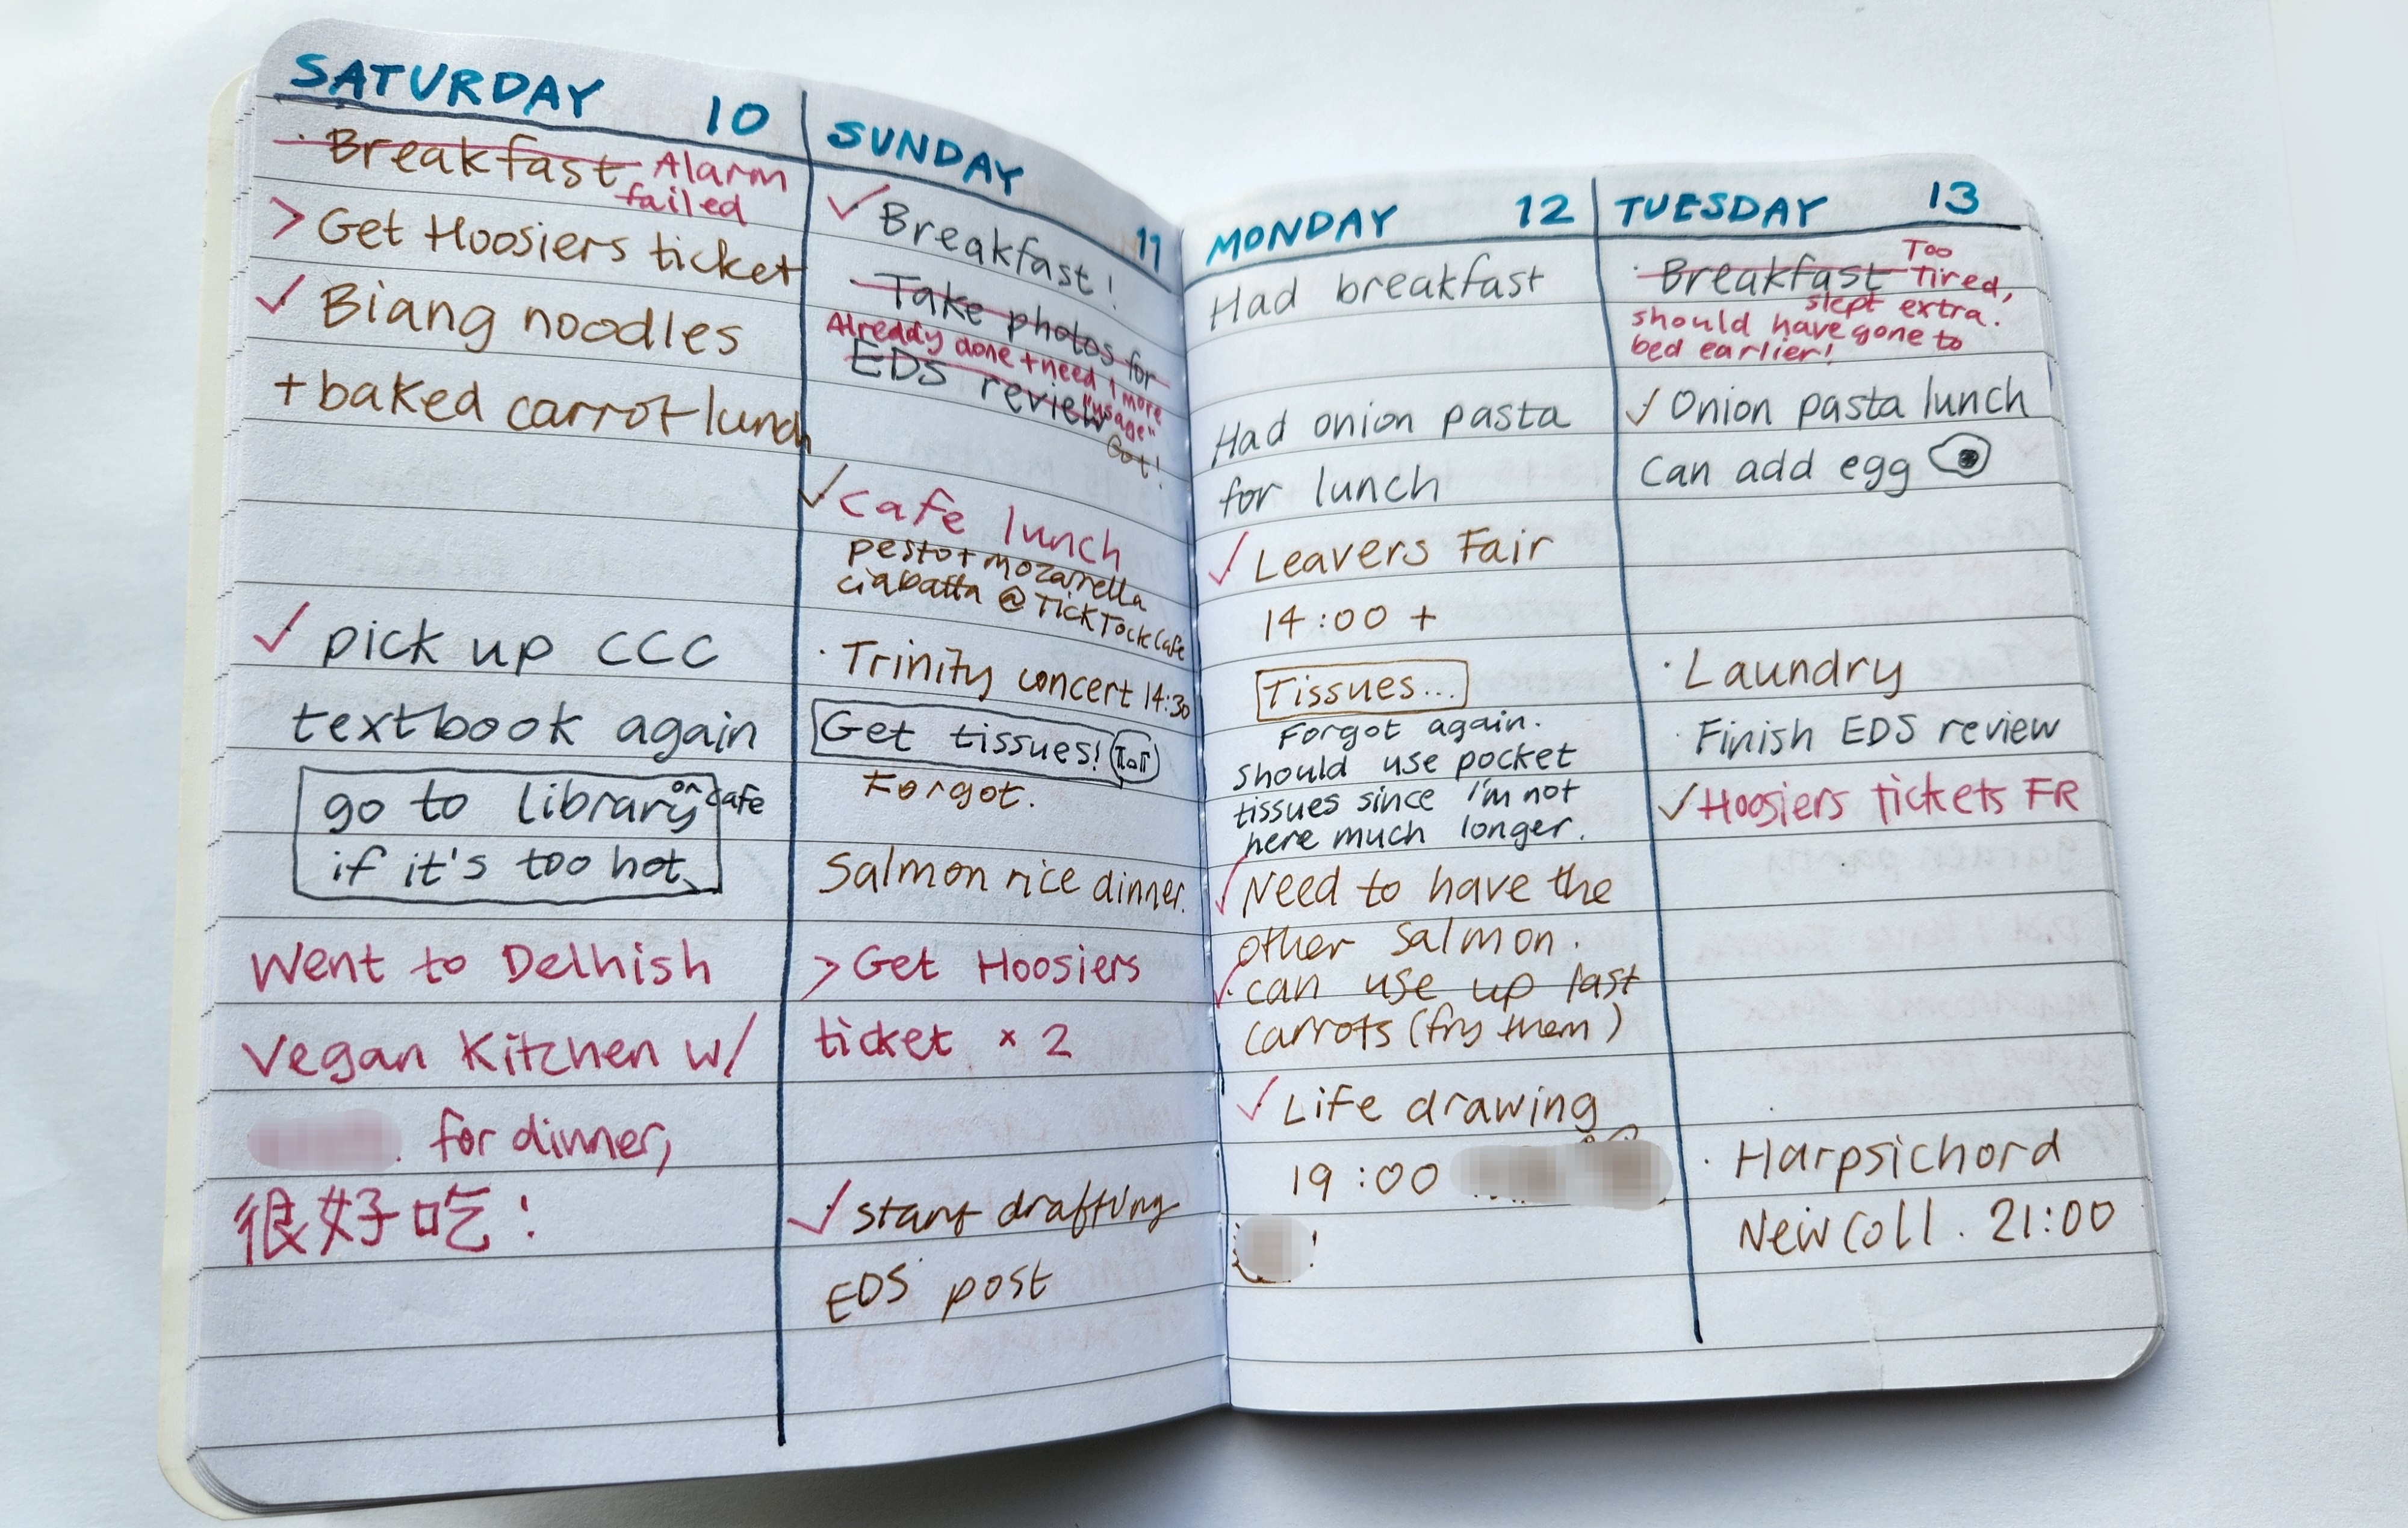 SATURDAY 10
· Breakfast Alarm
failed
> Get Hoosiers ticket
✓ Biang noodles
+ baked carrot lunch
✓ pick up CCC
textbook again
go to library or cafe
if it's too hot
Went to Delhish
Vegan Kitchen w/
for dinner,
很好吃!
SUNDAY 11
✓ Breakfast!
Take photos for
Already done + need 1 more
EDS review "usage"
Got!
✓ Cafe lunch
pesto + mozarella
ciabatta @ TickTock Cafe
· Trinity concert 14:30
Get tissues!
Forgot.
Salmon rice dinner.
> Get Hoosiers
ticket × 2
✓ start drafting
EDS post
MONDAY 12
Had breakfast
Had onion pasta
for lunch
✓ Leavers Fair
14:00 +
Tissues...
Forgot again.
Should use pocket
tissues since I'm not
here much longer.
✓ Need to have the
other salmon.
✓ can use up last
carrots (fry them)
✓ Life drawing
19:00
!
TUESDAY 13
· Breakfast Too
Tired,
slept extra.
should have gone to
bed earlier!
✓ Onion pasta lunch
Can add egg
· Laundry
· Finish EDS review
✓ Hoosiers tickets FR
· Harpsichord
New Coll. 21:00